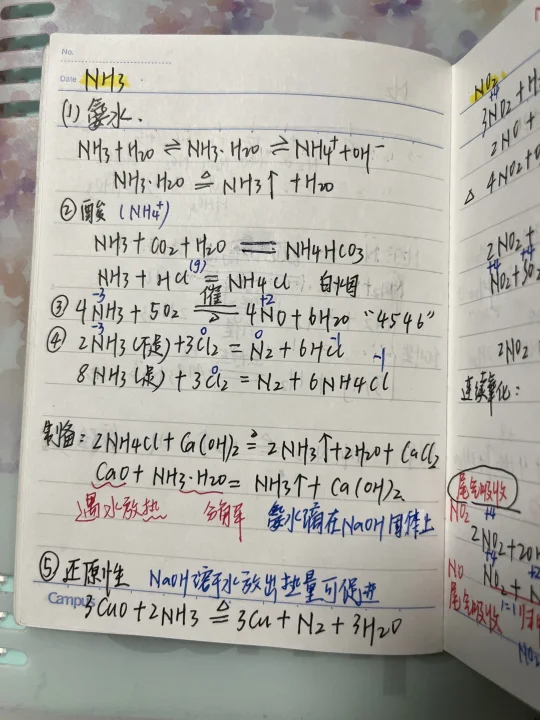 No.
Date NH3
(1) 氨水.
NH3+H2O ⇌ NH3·H2O ⇌ NH4⁺+OH⁻
NH3·H2O ≜ NH3↑ +H2O
② 酸 (NH4⁺)
NH3+CO2+H2O == NH4HCO3
NH3+HCl(g) = NH4Cl 白烟
-3 催 +2
③ 4NH3+5O2 ==△ 4NO+6H2O "4546"
-3 0 0 -1
④ 2NH3(不足)+3Cl2 = N2+6HCl
0 -1
8NH3(足)+3Cl2 = N2+6NH4Cl
制备: 2NH4Cl+Ca(OH)2 ≜ 2NH3↑+2H2O+CaCl2
CaO+NH3·H2O= NH3↑+Ca(OH)2
遇水放热 分解 氨水滴在NaOH固体上
⑤ 还原性 NaOH溶于水放出热量可促进
Campus
3CuO+2NH3 ≜ 3Cu+N2+3H2O
NO2
+4
3NO2+H
2NO+
△ 4NO2+O
2NO2+
+4 +4
NO2+SO2
2NO2
连续氧化:
尾气吸收
NO2 +4
2NO2+2OH
+4 +2
NO NO2+N
尾气吸收 1=1
NO2